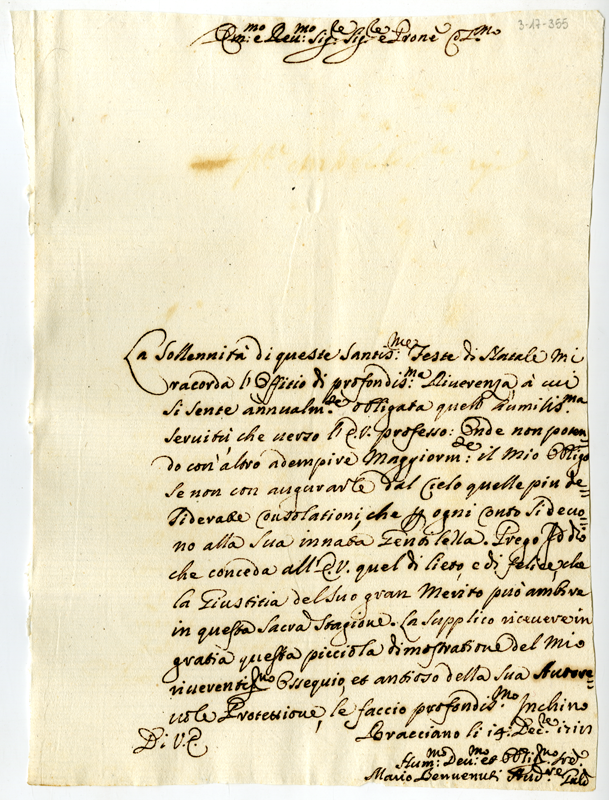 3-17-355
Em:mo e Reu:mo Sig:re Sig:re e Prone Col:mo
La Sollennità di queste Santis:me Feste di Natale mi
racorda l'Offitio di profondis:ma Riuerenza à cui
si sente annualm:te obligata quell' humilis:ma
seruitù che uerso l'E.V. professo: Onde non poten=
do con altro adempire Maggiorm:te il mio obligo
se non con augurarle dal Cielo quelle piu de=
siderabe Consolationi, che p ogni Conto si deuo=
no alla Sua innata Gentilezza. Prego Iddio
che conceda all'E.V. quel di lieto, e di felice, che
la Giustitia del suo gran Merito può ambire
in questa Sacra Stagione. La supplico riceuere in
gratia questa picciola dimostratione del Mio
riuerentis:mo Ossequio, et antioso della sua Autore=
uole Protettione, le faccio profondis:mo Inchino
Bracciano li 14. Dec:re
Di V.E.
Hum:mo Deu:mo et Oblig:mo
Mario Benuenuti